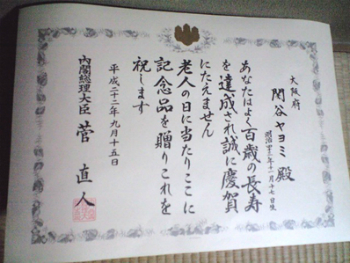 大阪府
関谷ヤヨミ 殿
明治四十三年十一月十七日生
あなたはよく百歳の長寿
を達成され誠に慶賀
にたえません
老人の日に当たりここに
記念品を贈りこれを
祝します
平成二十二年九月十五日
内閣総理大臣 菅 直人